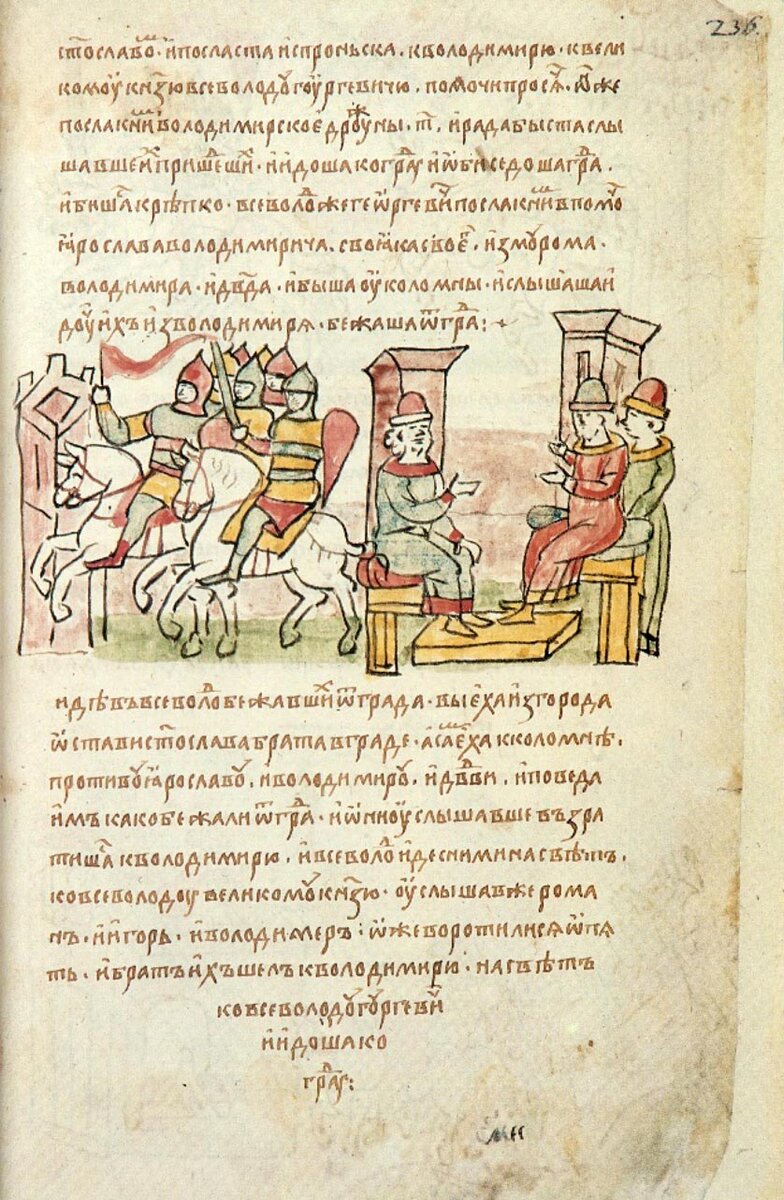 236.
стославоⷨ · и посласта испроньска · к володимирю · к вели
комоу кнзю всеволодоу гоургевичю, помочи просѧ · ѡ же
посла к ниⷨ володимирское дроуⷤны · т҃ · и рада быста слы
шавшеиⷯ пришеⷣшиⷯ · и идоша ко граⷣу и ѡбиседоша граⷣ ·
и бишаⷭ крѣпко · всеволоⷣ же геѡргевиⷱ посла к ниⷨ в помоⷱ
ѧрослава володимирича · своѧка своеⷢ · из мурома ·
володимира · и дв҃да · и быша оу коломны · и слышаша и
доуⷱ ихъ из володимиря · бежаша ѿ граⷣ :·
видѣвъ всеволоⷣ бежавшиⷯ ѿ града · выеха из города
ѡстави стослава брата в граде · а саⷨ еха к коломнѣ ·
противоу ѧрославоу · и володимироу · и дв҃дви · и поведа
имъ како бежали ѿ граⷣ · и ѡни оуслышавше възра
тишаⷭ к володимирю · и всеволоⷣ иде с ними на свѣтъ ·
ко всеволодоу великомоу кнзю · оуслышав же рома
нъ · и игорь · и володимеръ : ѡже воротилися ѡпя
ть · и братъ ихъ шелъ к володимирю · на свѣтъ
ко всеволодоу гоургевиⷱ
и идоша ко
граⷣу :